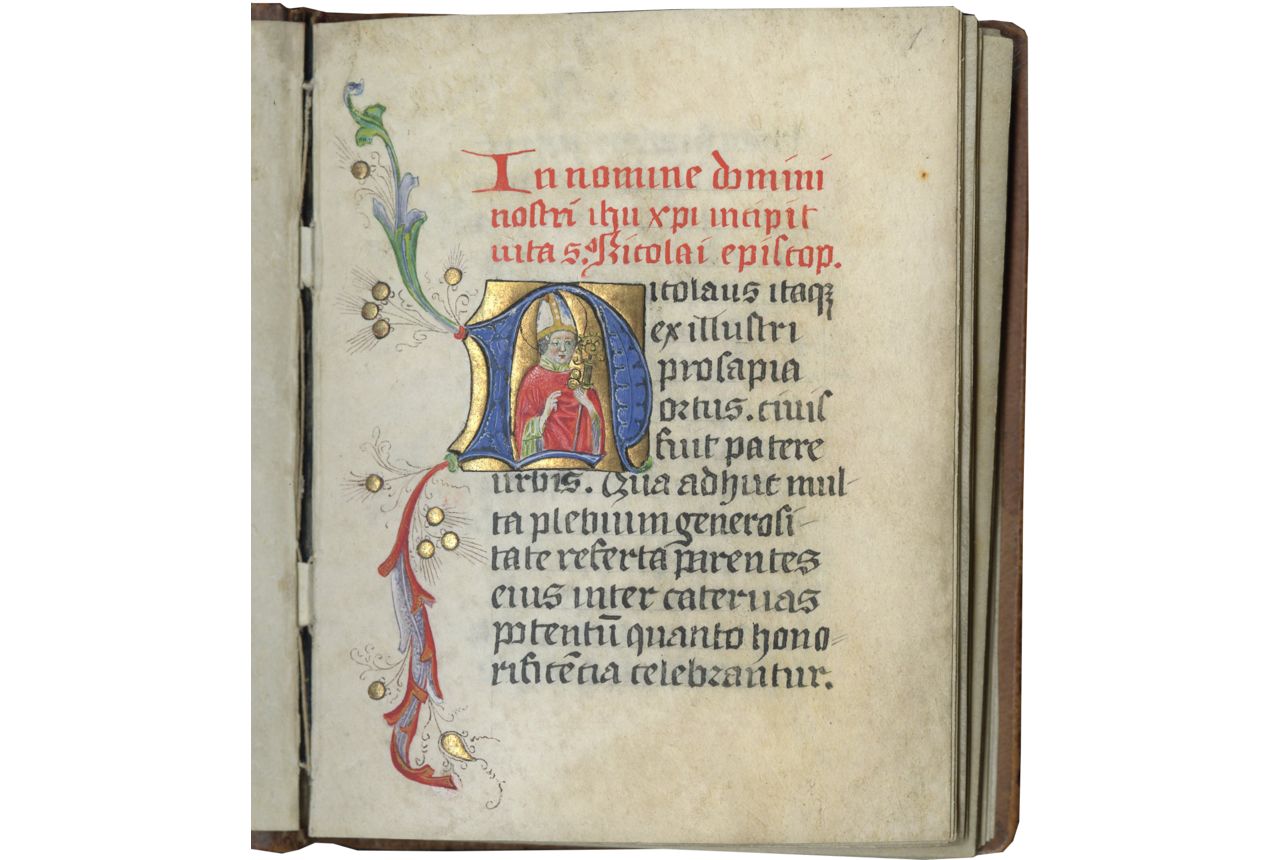 1
In nomine domini
nostri ihu xpi incipit
uita s. Nicolai episcop.
Nicolaus itaqꝫ
ex illustri
prosapia
ortus. ciuis
fuit patere
urbis. Qua adhuc mul-
ta plebium generosi-
tate referta parentes
eius inter cateruas
potentū quanto hono-
rificētia celebrantur.